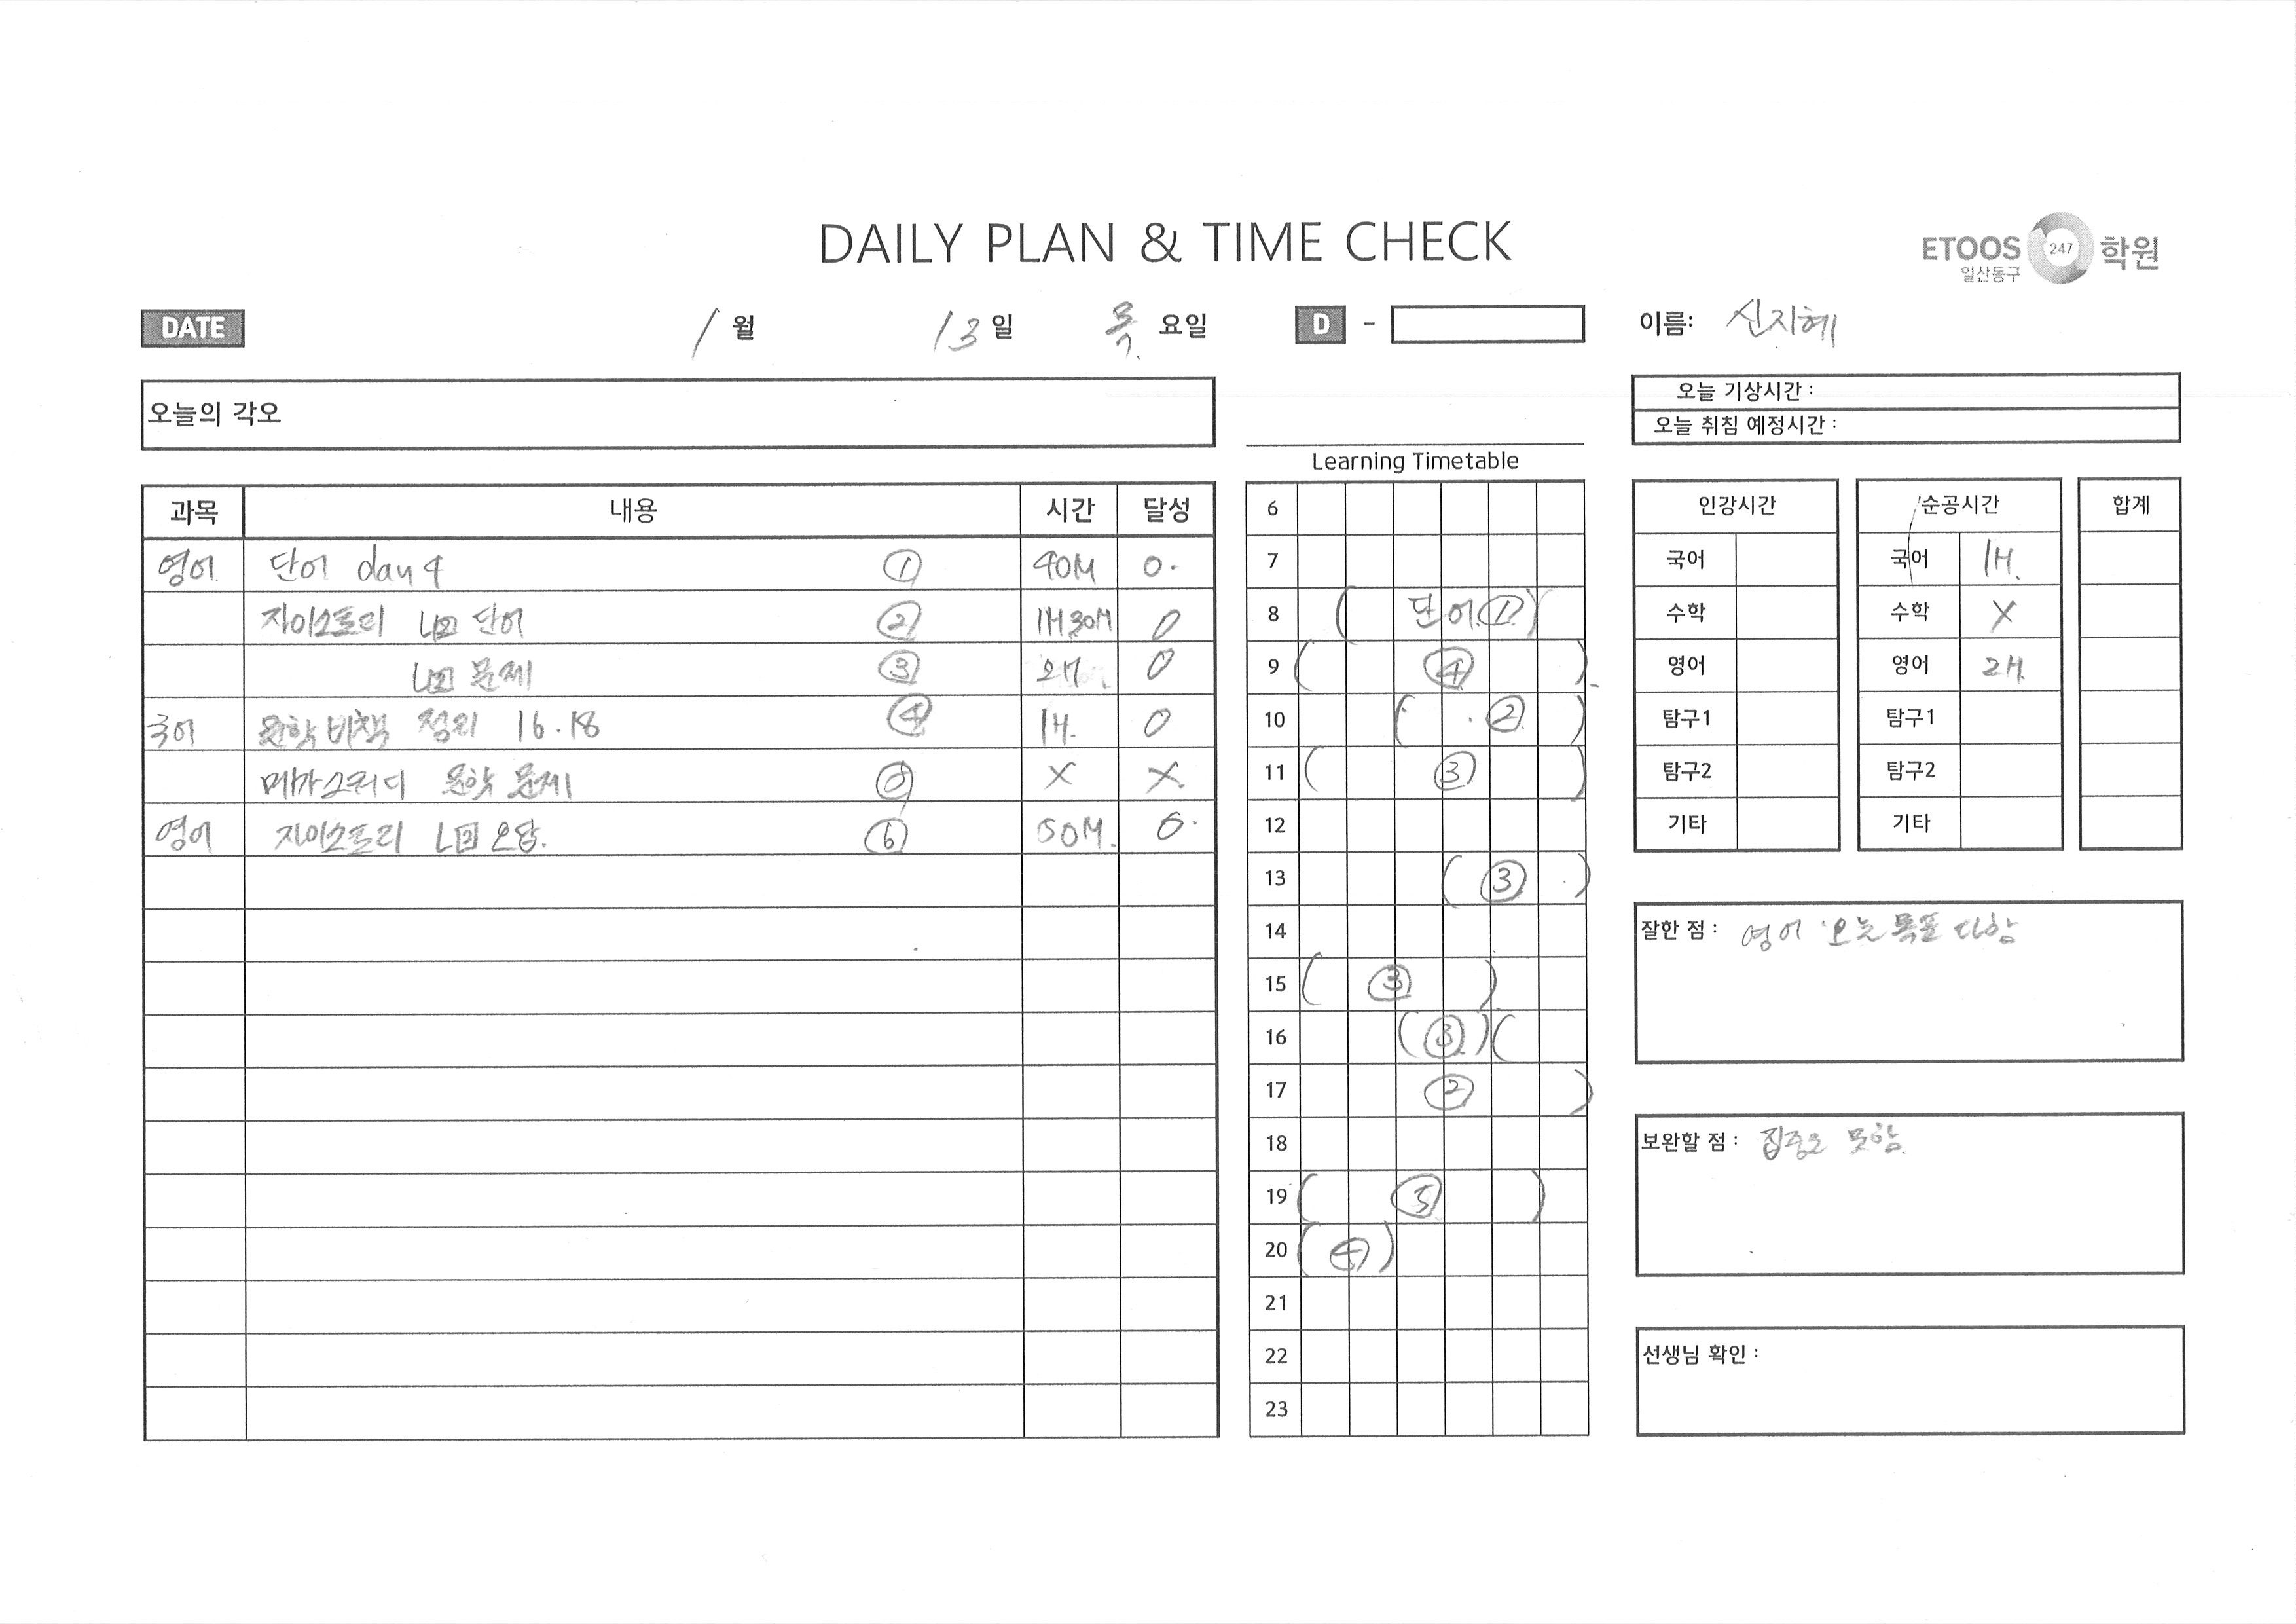 DAILY PLAN & TIME CHECK
ETOOS 247 학원
일산동구
DATE 1월 13일 목요일 D - 이름: 신지혜
오늘의 각오
오늘 기상시간 :
오늘 취침 예정시간 :
과목 내용 시간 달성
영어 단어 day 4 ① 40M 0.
자이스토리 4회 단어 ② 1H 30M 0
4회 문제 ③ 2H. 0
국어 문학비책 정리 16.18 ④ 1H. 0
메가스터디 문학 문제 ⑤ X X
영어 자이스토리 오답. ⑥ 50M. 0.
Learning Timetable
6
7
8 ( 단어① )
9 ( ④ )
10 ( ② )
11 ( ③ )
12
13 ( ③ )
14
15 ( ③ )
16 ( ③ ) (
17 ② )
18
19 ( ⑤ )
20 ( ④ )
21
22
23
인강시간
국어
수학
영어
탐구1
탐구2
기타
순공시간
국어 1H.
수학 X
영어 2H.
탐구1
탐구2
기타
합계
잘한 점 : 영어 오늘 목표 다함
보완할 점 : 집중으 못함
선생님 확인 :